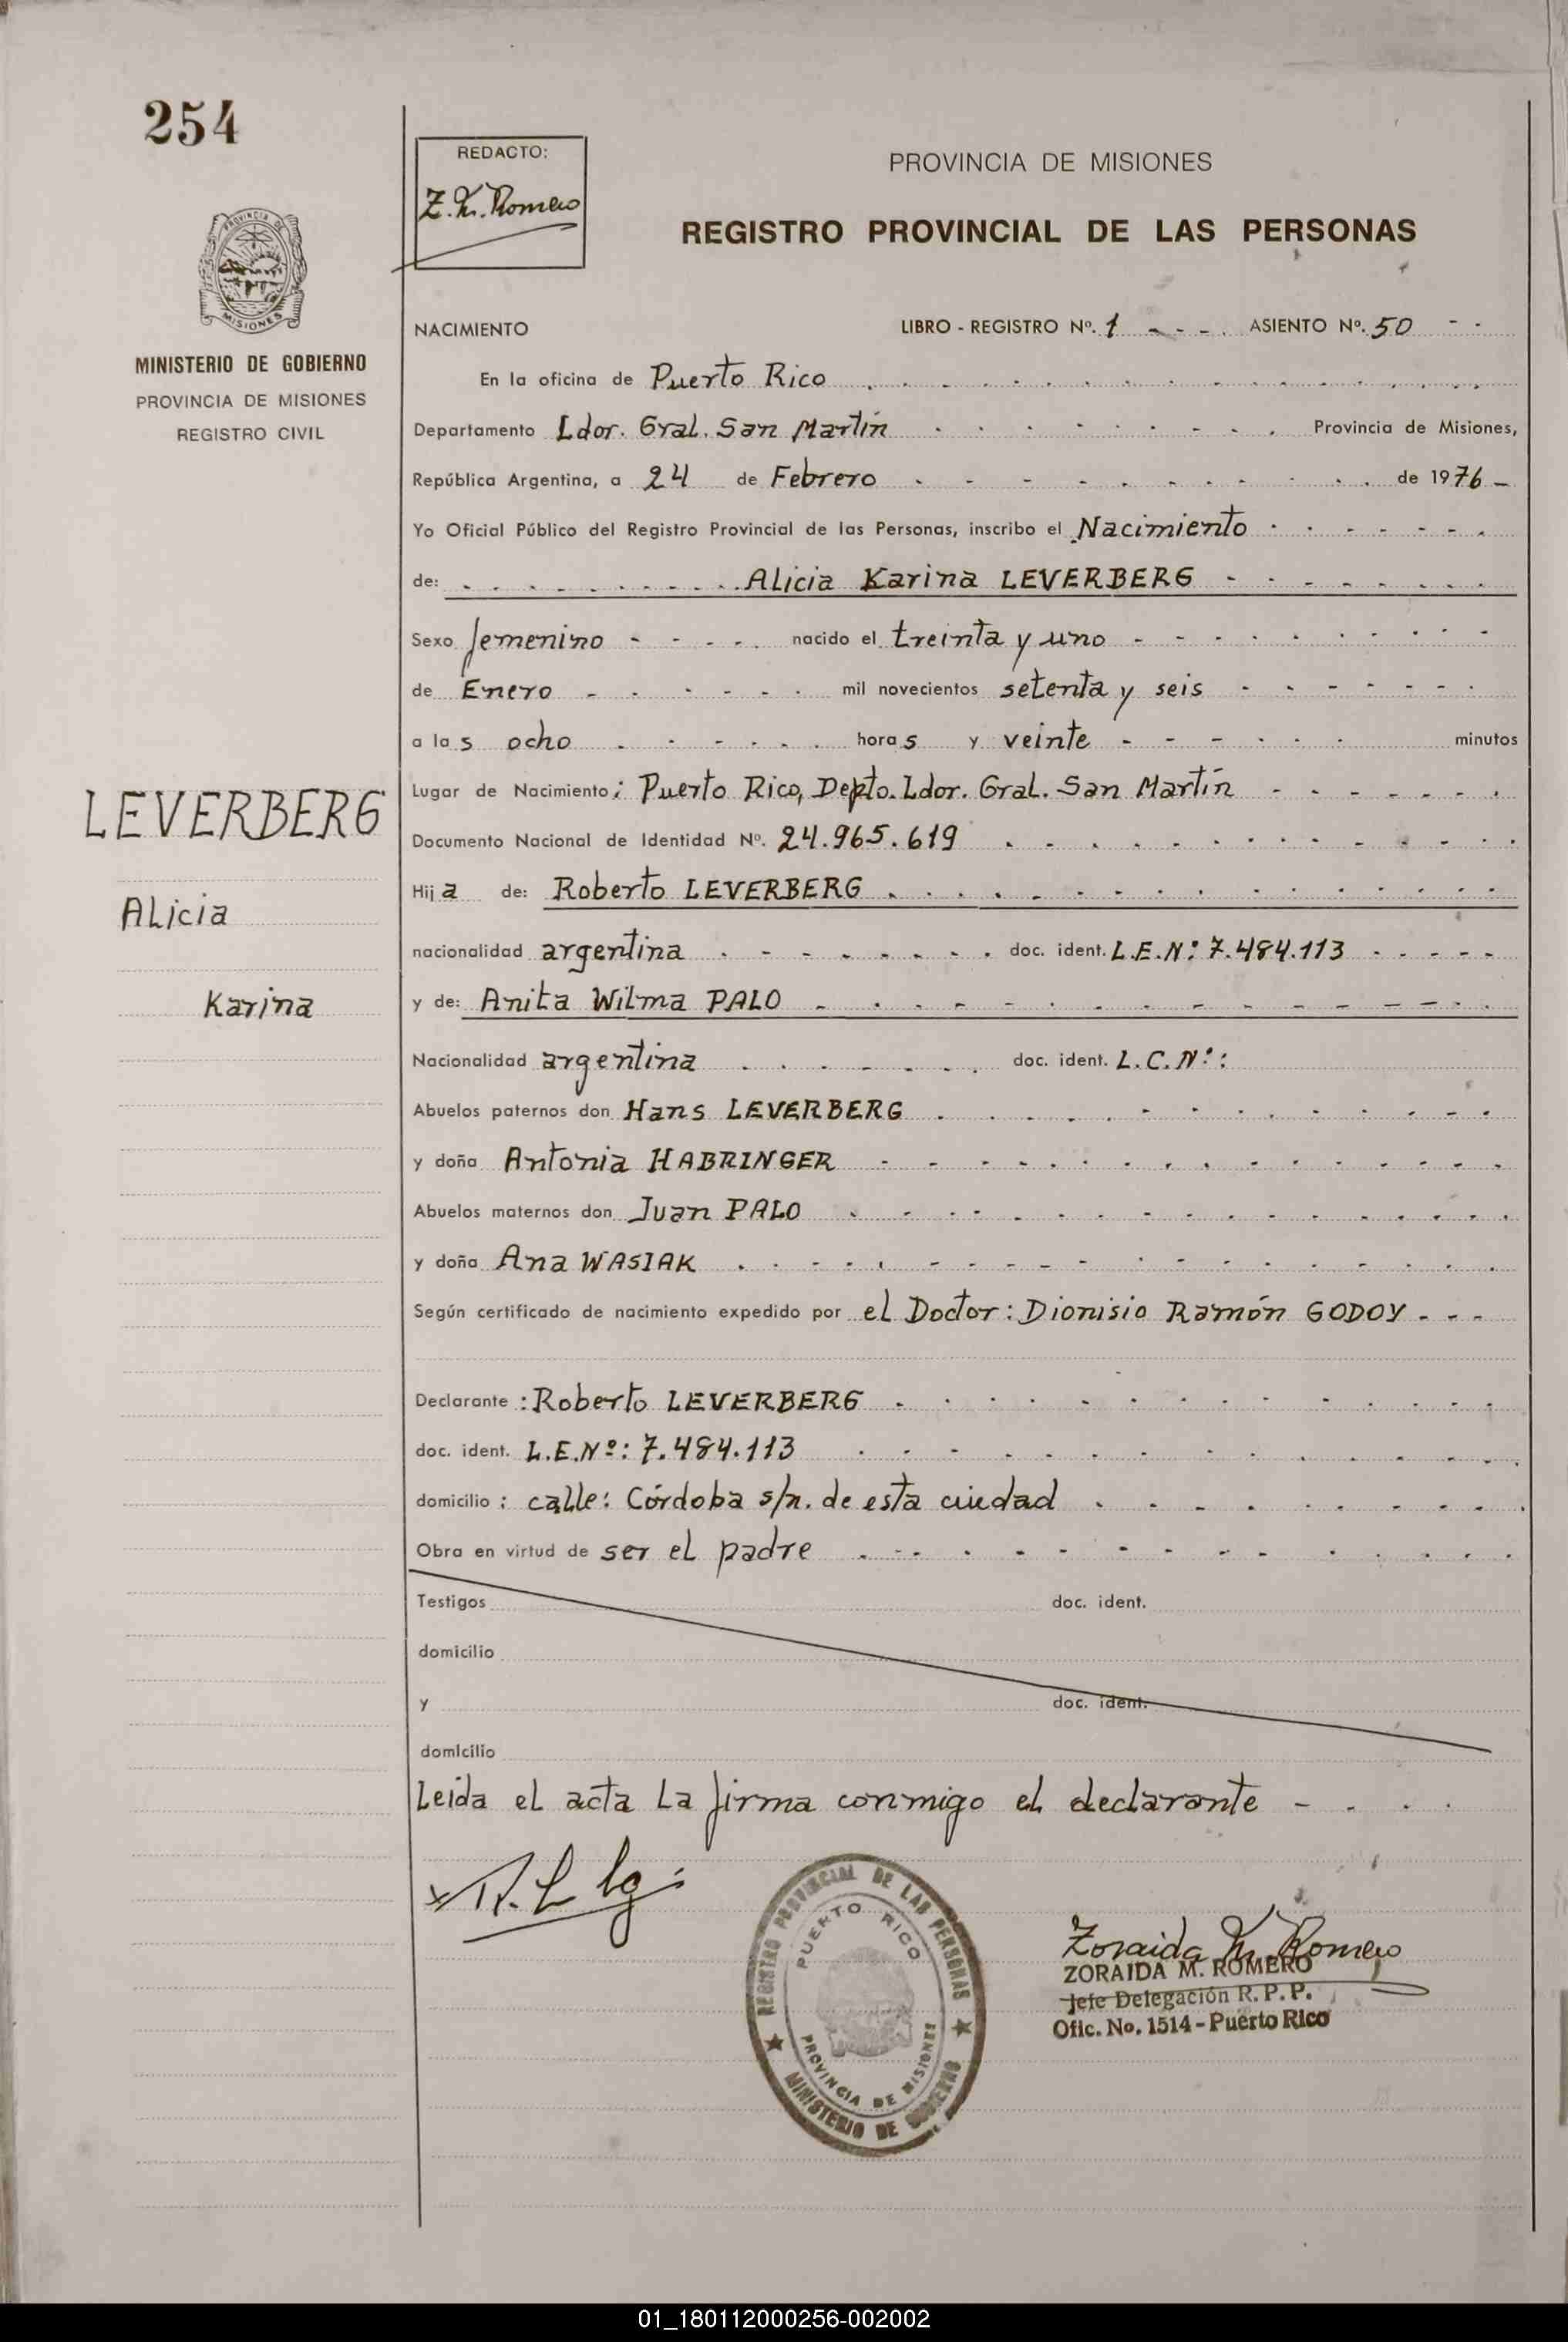 254
PROVINCIA DE
MISIONES
MINISTERIO DE GOBIERNO
PROVINCIA DE MISIONES
REGISTRO CIVIL
LEVERBERG
Alicia
Karina
REDACTO:
Z. M. Romero
PROVINCIA DE MISIONES
REGISTRO PROVINCIAL DE LAS PERSONAS
NACIMIENTO LIBRO - REGISTRO Nº. 1 - - - . ASIENTO Nº. 50 - -
En la oficina de Puerto Rico
Departamento Ldor. Gral. San Martín Provincia de Misiones,
República Argentina, a 24 de Febrero de 1976 -
Yo Oficial Público del Registro Provincial de las Personas, inscribo el Nacimiento
de: Alicia Karina LEVERBERG
Sexo femenino nacido el treinta y uno
de Enero mil novecientos setenta y seis
a las ocho horas y veinte minutos
Lugar de Nacimiento: Puerto Rico, Depto. Ldor. Gral. San Martín
Documento Nacional de Identidad Nº. 24.965.619
Hija de: Roberto LEVERBERG
nacionalidad argentina doc. ident. L.E.Nº: 7.484.113
y de: Anita Wilma PALO
Nacionalidad argentina doc. ident. L.C.Nº:
Abuelos paternos don Hans LEVERBERG
y doña Antonia HABRINGER
Abuelos maternos don Juan PALO
y doña Ana WASIAK
Según certificado de nacimiento expedido por el Doctor: Dionisio Ramón GODOY - - -
Declarante: Roberto LEVERBERG
doc. ident. L.E.Nº: 7.484.113
domicilio: calle: Córdoba s/n. de esta ciudad
Obra en virtud de ser el padre
Testigos doc. ident.
domicilio
y doc. ident.
domicilio
Leida el acta la firma conmigo el declarante
REGISTRO PROVINCIAL DE LAS PERSONAS
PUERTO RICO
PROVINCIA DE MISIONES
MINISTERIO DE GOBIERNO
Zoraida M. Romero
ZORAIDA M. ROMERO
Jefe Delegación R. P. P.
Ofic. No. 1514 - Puerto Rico
01_180112000256-002002